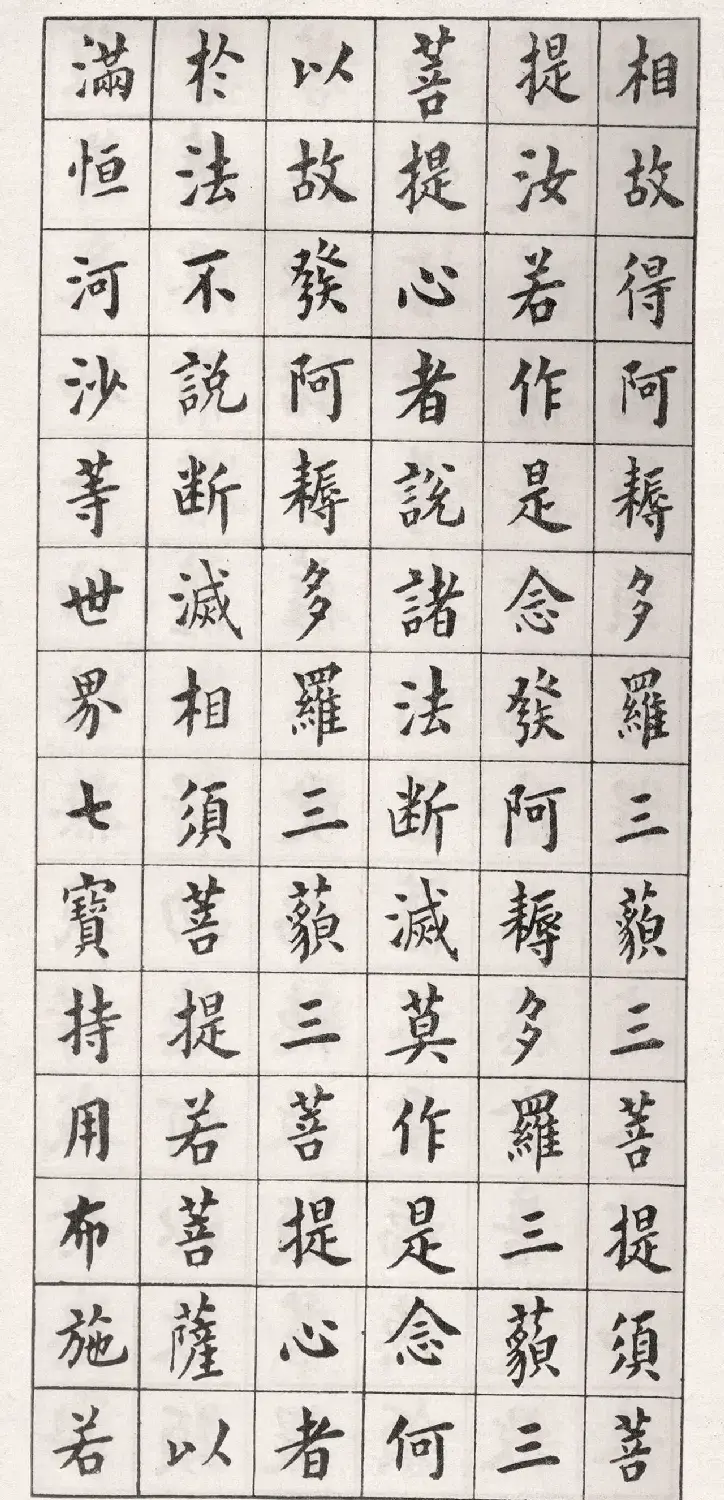 相故得阿耨多羅三藐三菩提須菩
提汝若作是念發阿耨多羅三藐三
菩提心者說諸法断滅莫作是念何
以故發阿耨多羅三藐三菩提心者
於法不説断滅相須菩提若菩薩以
滿恒河沙等世界七寶持用布施若